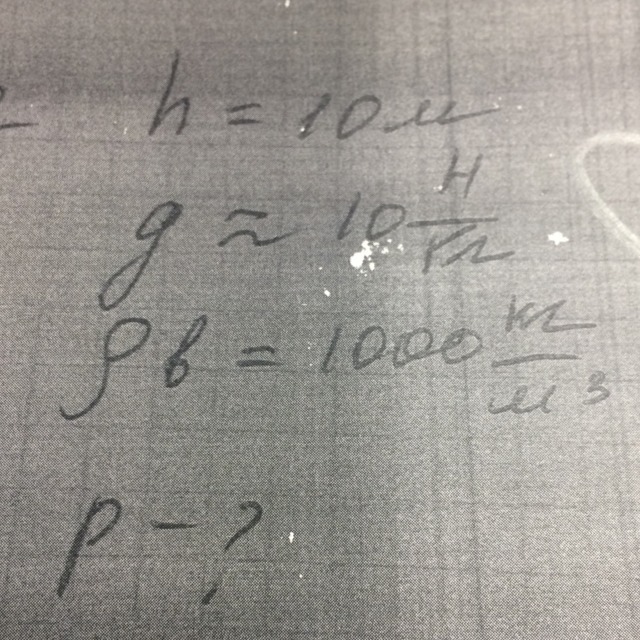 h = 10 м
g ≈ 10 Н/кг
ρв = 1000 кг/м³
p - ?